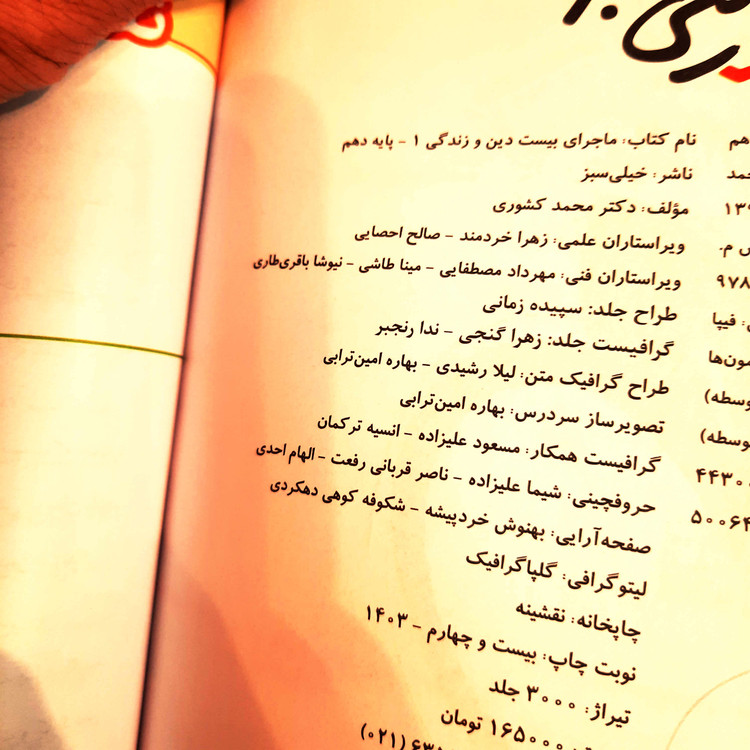 نام کتاب: ماجرای بیست دین و زندگی ۱ - پایه دهم
ناشر: خیلی‌سبز
مؤلف: دکتر محمد کشوری
ویراستاران علمی: زهرا خردمند - صالح احصایی
ویراستاران فنی: مهرداد مصطفایی - مینا طاشی - نیوشا باقری‌طاری
طراح جلد: سپیده زمانی
گرافیست جلد: زهرا گنجی - ندا رنجبر
طراح گرافیک متن: لیلا رشیدی - بهاره امین‌ترابی
تصویرساز سردرس: بهاره امین‌ترابی
گرافیست همکار: مسعود علیزاده - انسیه ترکمان
حروفچینی: شیما علیزاده - ناصر قربانی رفعت - الهام احدی
صفحه‌آرایی: بهنوش خردپیشه - شکوفه کوهی دهکردی
لیتوگرافی: گلپاگرافیک
چاپخانه: نقشینه
نوبت چاپ: بیست و چهارم - ۱۴۰۳
تیراژ: ۳۰۰۰ جلد
۱۶۵۰۰۰ تومان
(۰۲۱)
م.
۹۷۸
: فیپا